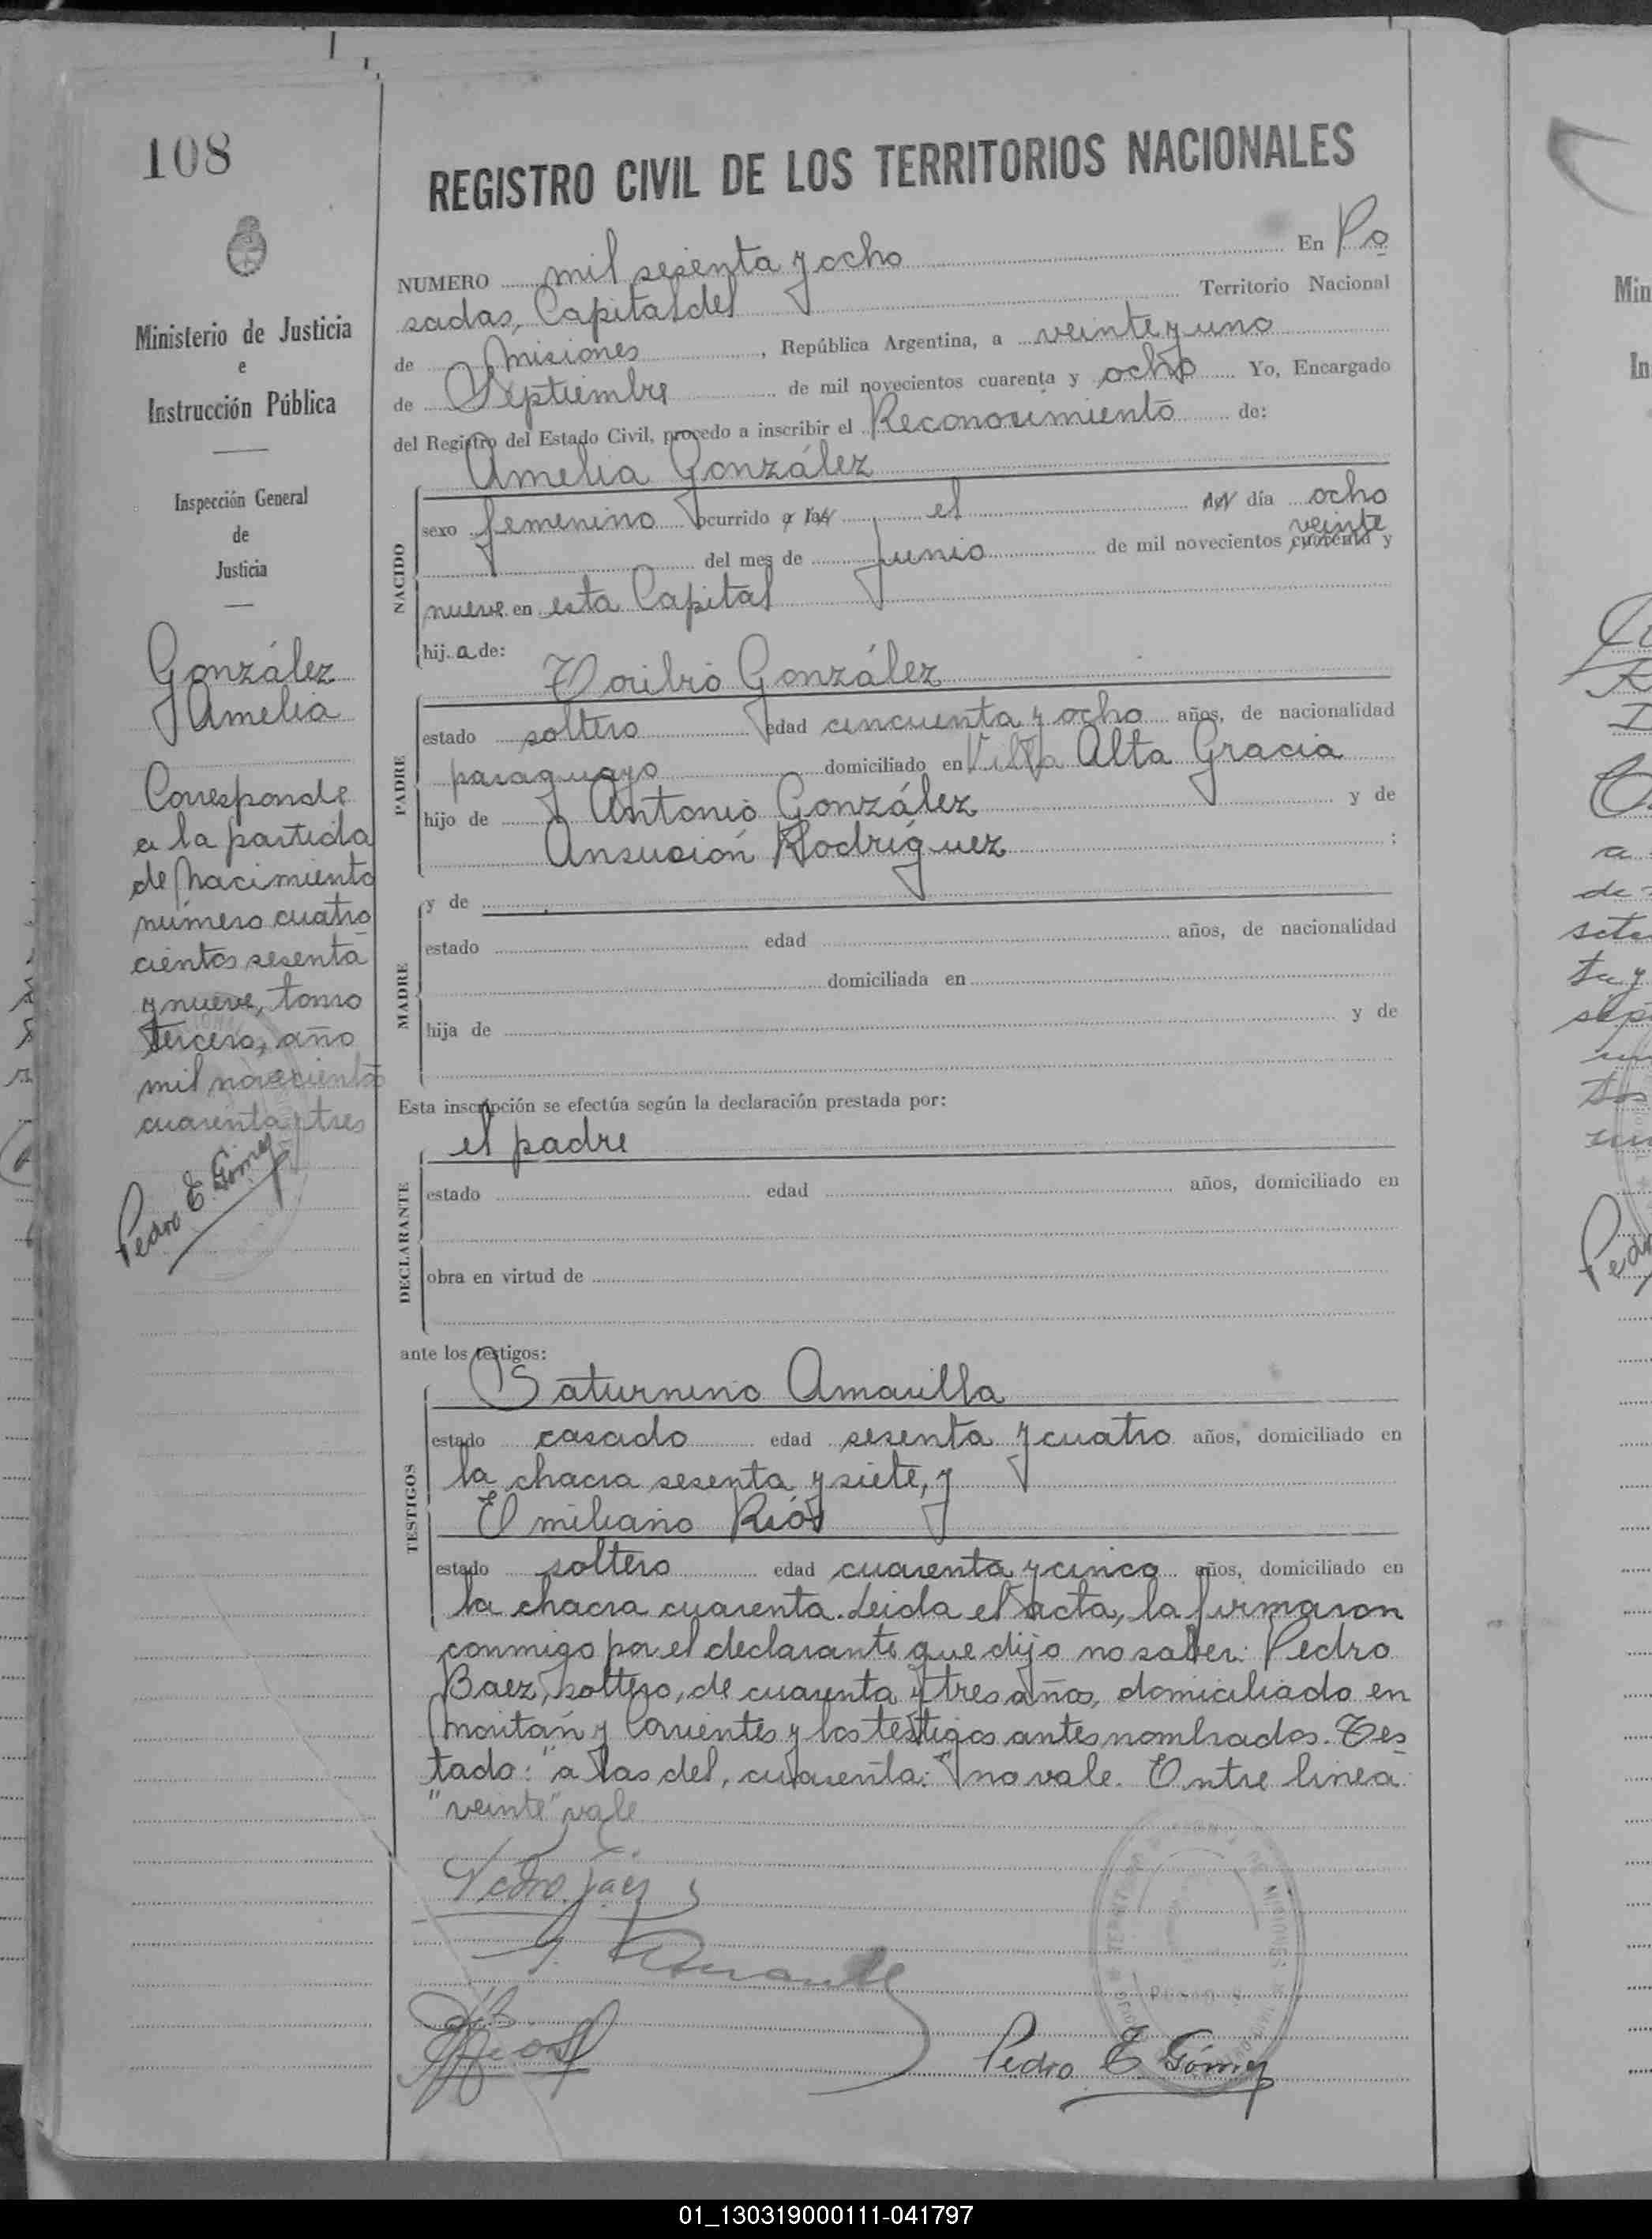 108
Ministerio de Justicia
e
Instrucción Pública
Inspección General
de
Justicia
González
Amelia
Corresponde
a la partida
de Nacimiento
número cuatro
cientos sesenta
y nueve, tomo
tercero, año
mil novecientos
cuarenta y tres
Pedro E. Gómez
REGISTRO CIVIL DE LOS TERRITORIOS NACIONALES
NUMERO mil sesenta y ocho En Po
sadas, Capital del Territorio Nacional
de Misiones, República Argentina, a veinte y uno
de Septiembre de mil novecientos cuarenta y ocho Yo, Encargado
del Registro del Estado Civil, procedo a inscribir el Reconocimiento de:
Amelia González
NACIDO
sexo femenino ocurrido a las el del día ocho
veinte
del mes de Junio de mil novecientos cuarenta y
nueve en esta Capital
hij.a de:
Toribio González
PADRE
estado soltero edad cincuenta y ocho años, de nacionalidad
paraguayo domiciliado en Villa Alta Gracia
hijo de Antonio González y de
Ansución Rodríguez ;
MADRE
y de
estado edad años, de nacionalidad
domiciliada en
hija de y de
Esta inscripción se efectúa según la declaración prestada por:
el padre
DECLARANTE
estado edad años, domiciliado en
obra en virtud de
ante los testigos:
TESTIGOS
Saturnino Amarilla
estado casado edad sesenta y cuatro años, domiciliado en
la chacra sesenta y siete, y
Emiliano Ríos
estado soltero edad cuarenta y cinco años, domiciliado en
la chacra cuarenta. Leida el acta, la firmaron
conmigo por el declarante que dijo no saber: Pedro
Baez, soltero, de cuarenta y tres años, domiciliado en
y Corrientes y los testigos antes nombrados. Tes
tado: "a las del, cuarenta:" no vale. Entre linea
"veinte" vale
Pedro Baez
Pedro E. Gómez
01_130319000111-041797